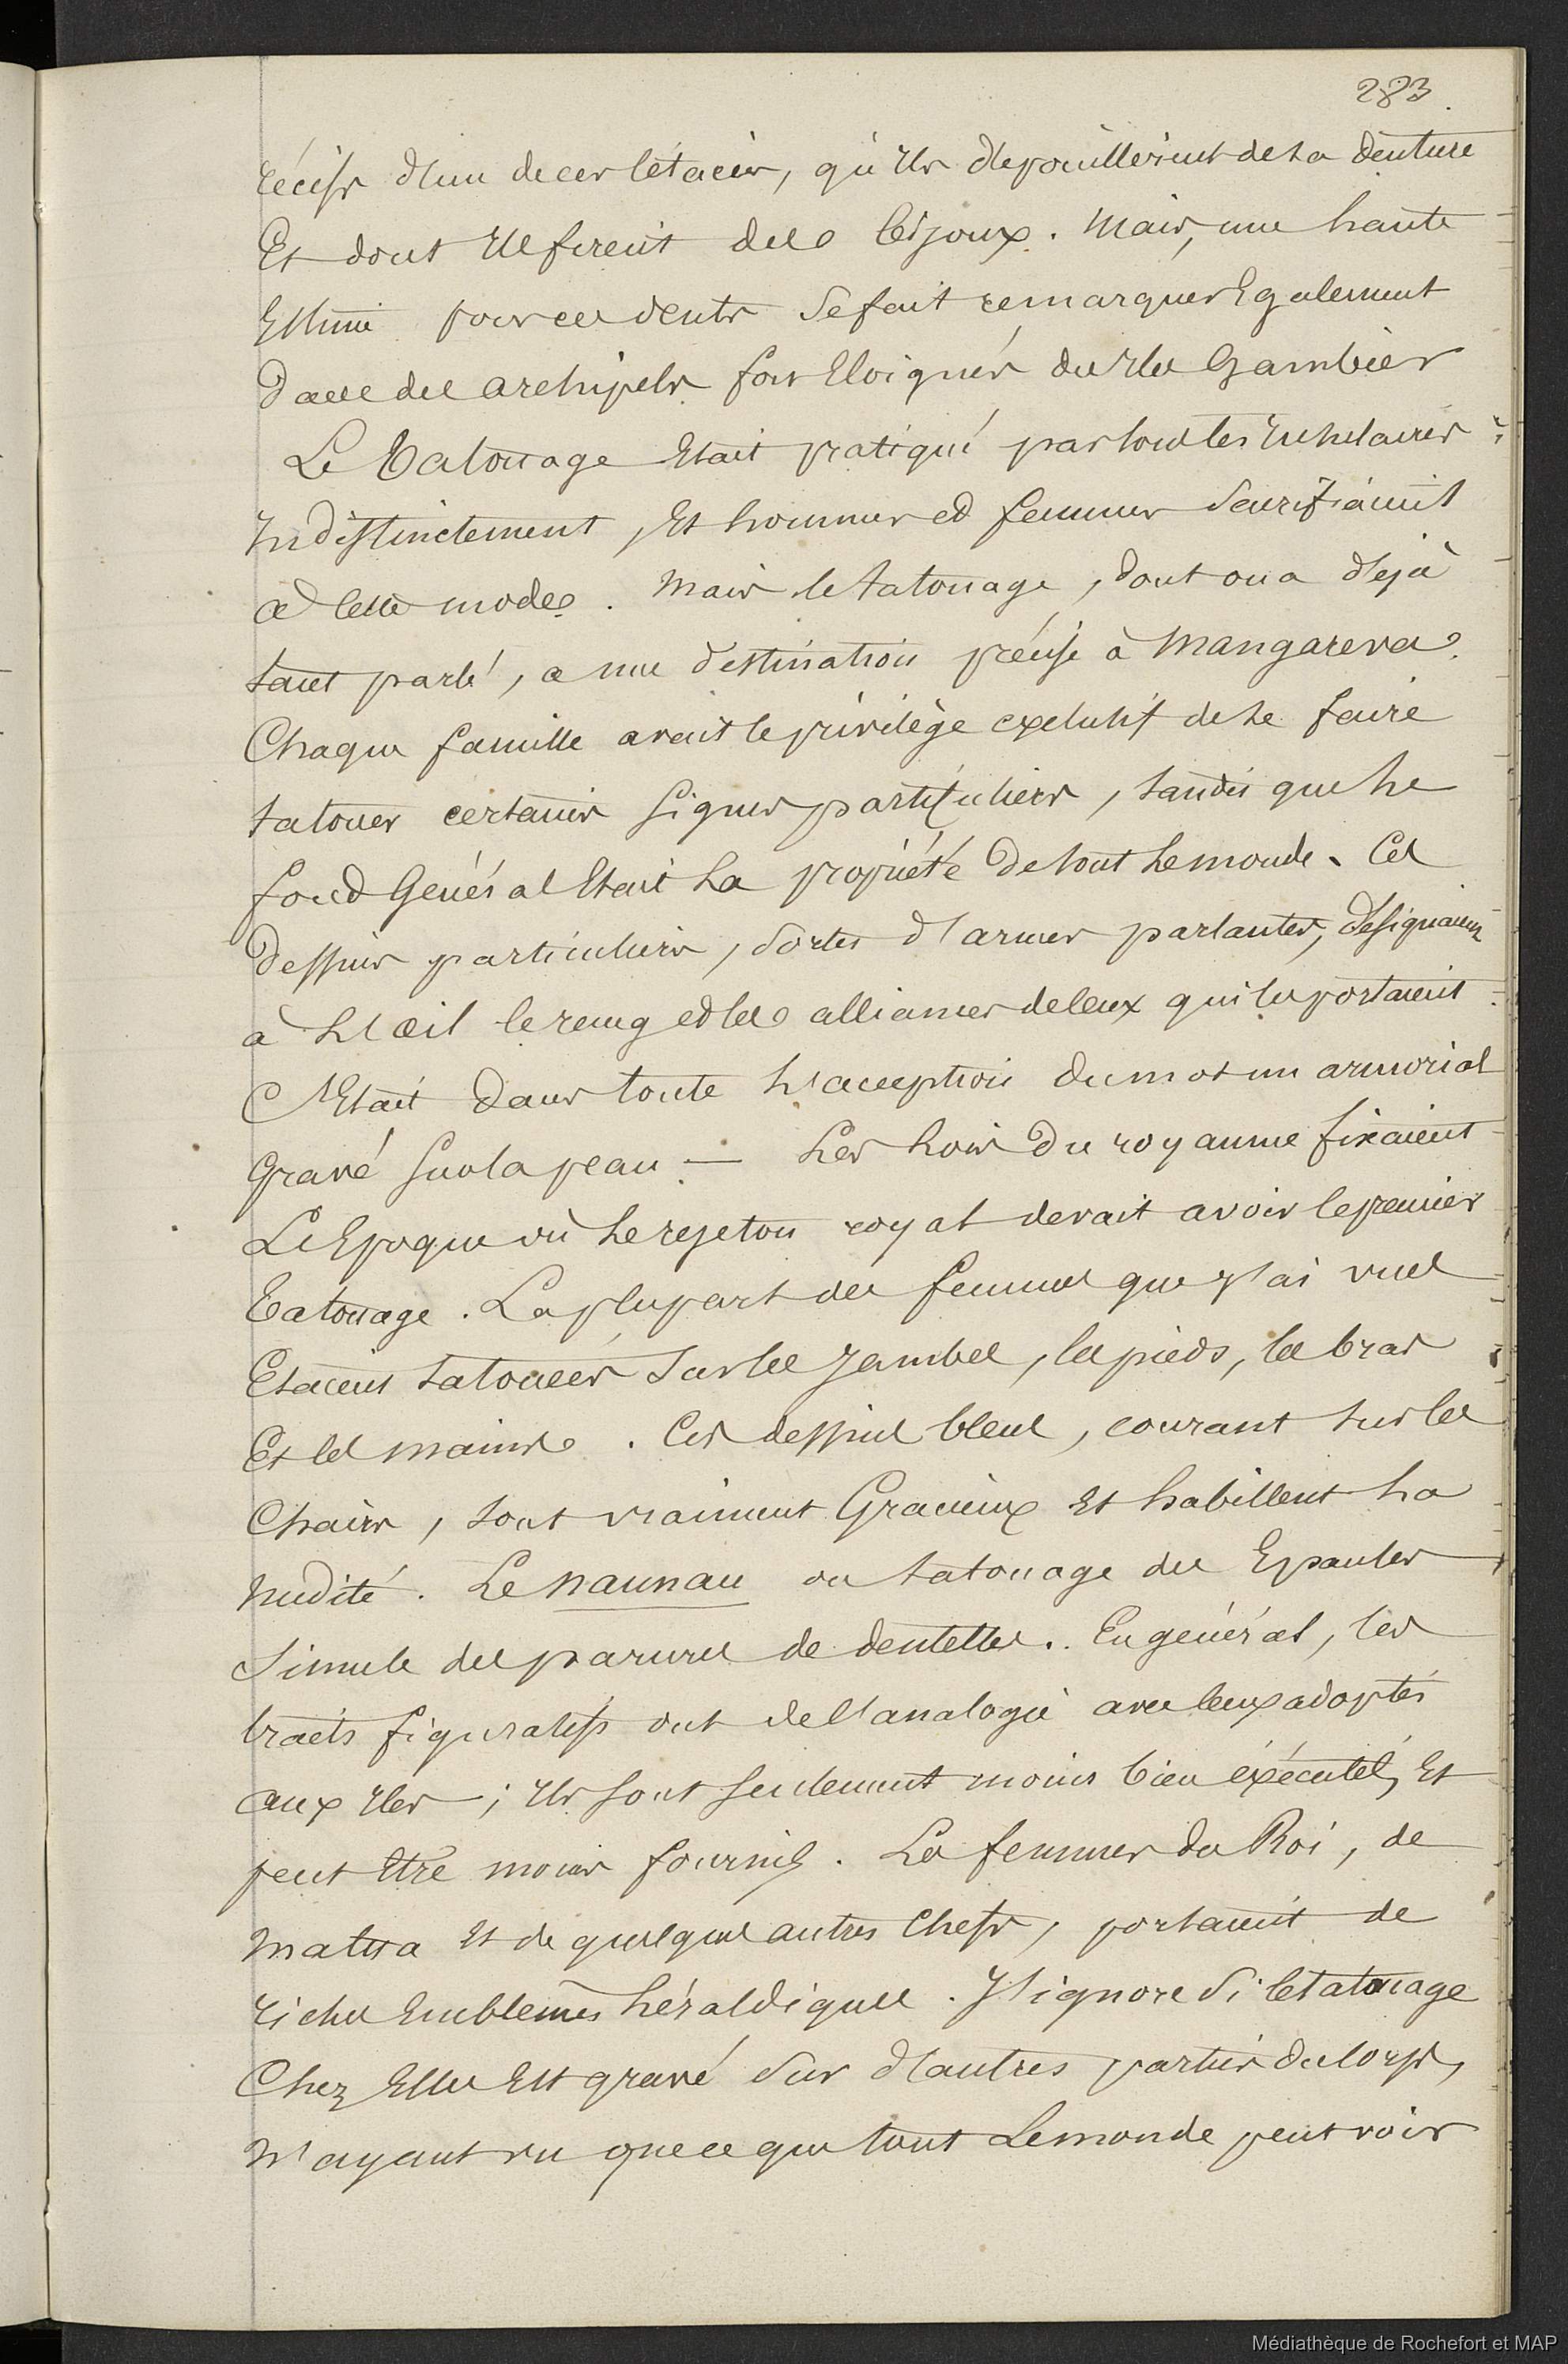 283.
récifs d'un de ces Cétacés, qu'ils dépouillèrent de sa denture
Et dont Ils firent des bijoux. Mais, une haute
Estime pour ces dents se fait remarquer Egalement
Dans des archipels fors Eloignés des Iles Gambier
Le Tatouage Etait pratiqué par tous les Insulaires
Indistinctement, Et hommes et femmes sacrifiaient
à Cette mode. Mais le tatouage, dont on a déjà
tant parlé, a une destination précise à Mangareva.
Chaque famille avait le privilège exclusif de se faire
tatouer certains signes particuliers, tandis que le
fond Général Etait la propriété de tout le monde. Ces
Dessins particuliers, sortes d'armes parlantes, désignaient
à l'œil le rang et les alliances de ceux qui les portaient.
C'Etait dans toute l'acception du mot un armorial
Gravé sur la peau — Les lois du royaume fixaient
L'Epoque où le rejeton royal devait avoir le premier
Tatouage. La plupart des femmes que j'ai vues
Etaient tatouées sur les jambes, les pieds, les bras
Et les mains. Ces dessins bleus, courant sur les
Chairs, sont vraiment Gracieux Et habillent la
nudité. Le naunau ou tatouage des Epaules
Simule des parures de dentelles. En général, les
traits figuratifs ont de l'analogie avec ceux adoptés
aux Iles ; Ils sont seulement moins bien éxécutés, Et
peut Etre moins fournis. La femmes du Roi, de
Matua Et de quelques autres Chefs, portaient de
riches Emblemes héraldiques. J'ignore si le tatouage
Chez Elles Est gravé sur d'autres parties du corps,
N'ayant vu que ce que tout Le monde peut voir
Médiathèque de Rochefort et MAP